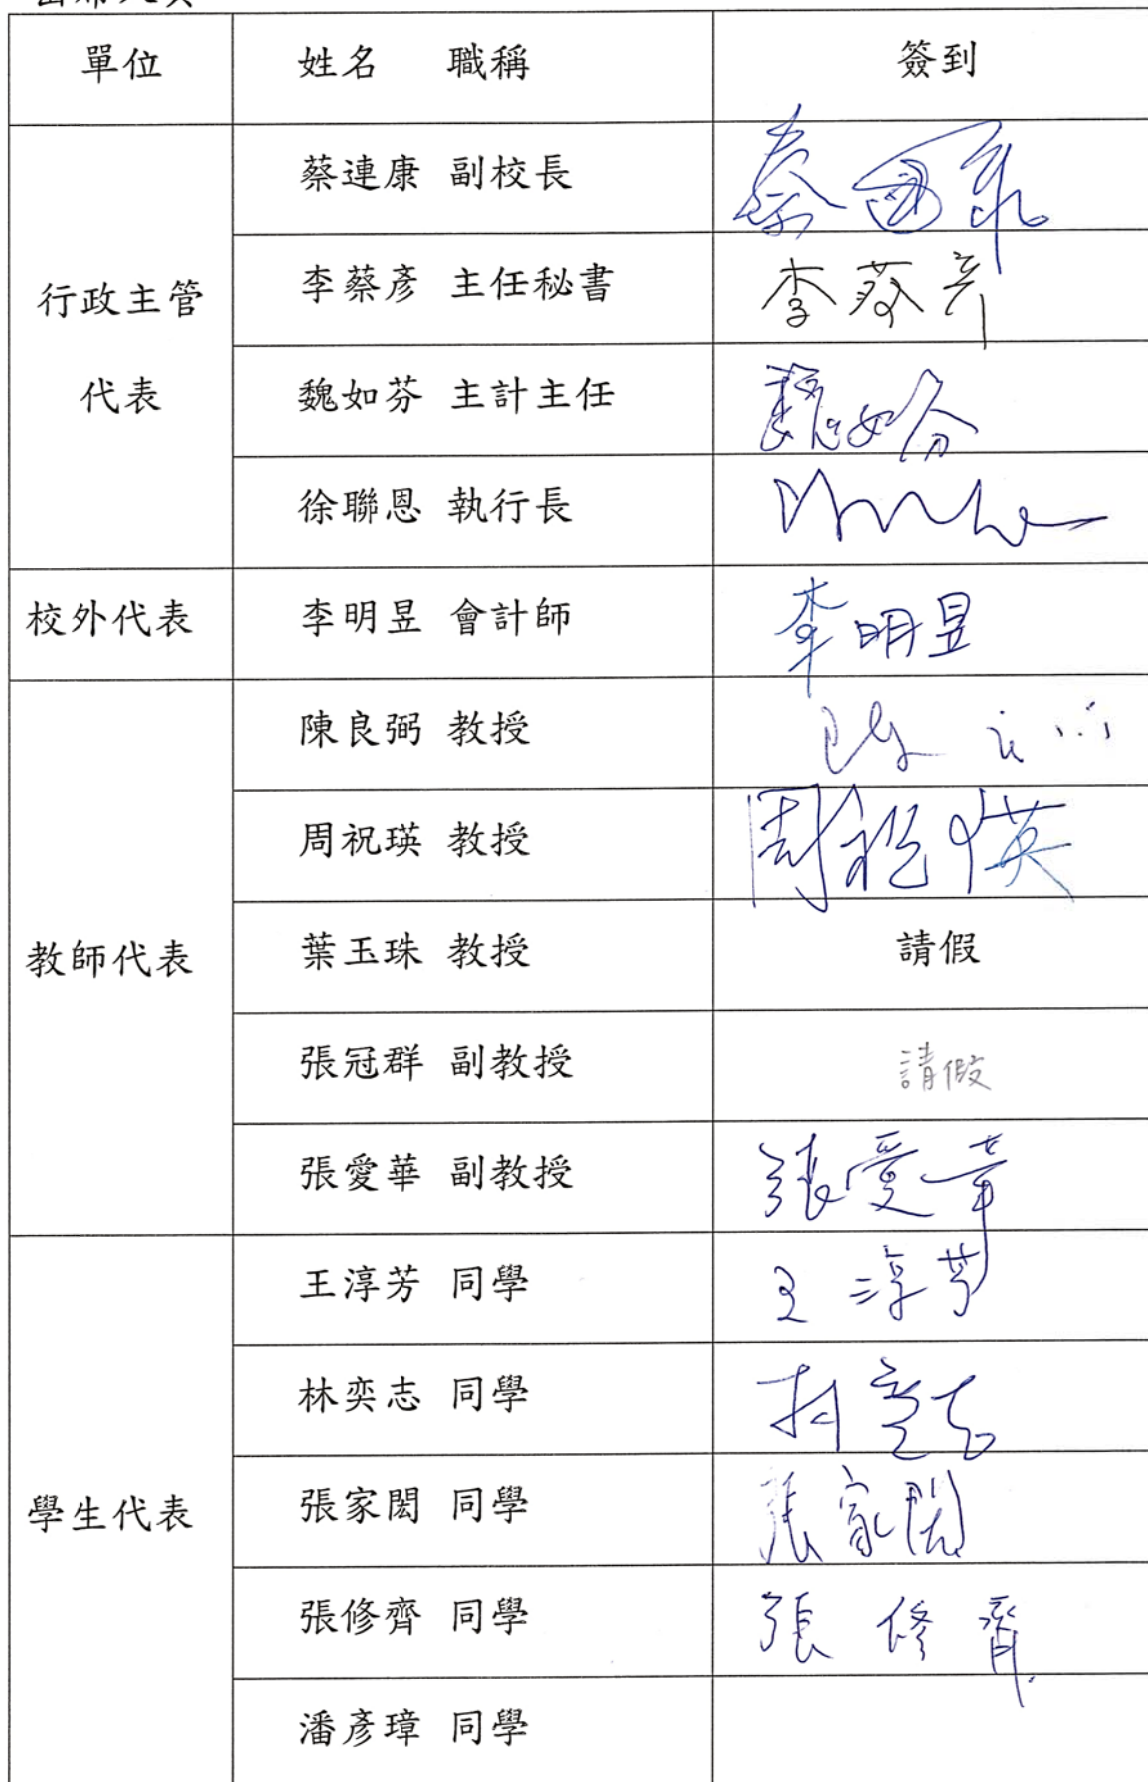 單位 姓名 職稱 簽到
蔡連康 副校長
行政主管
李蔡彥 主任秘書 李蔡彥
代表
魏如芬 主計主任 魏如芬
徐聯恩 執行長
校外代表 李明昱 會計師 李明昱
陳良弼 教授
周祝瑛 教授 周祝瑛
教師代表 葉玉珠 教授 請假
張冠群 副教授 請假
張愛華 副教授 張愛華
王淳芳 同學 王淳芳
林奕志 同學 林奕志
學生代表 張家閎 同學 張家閎
張修齊 同學 張修齊
潘彥璋 同學